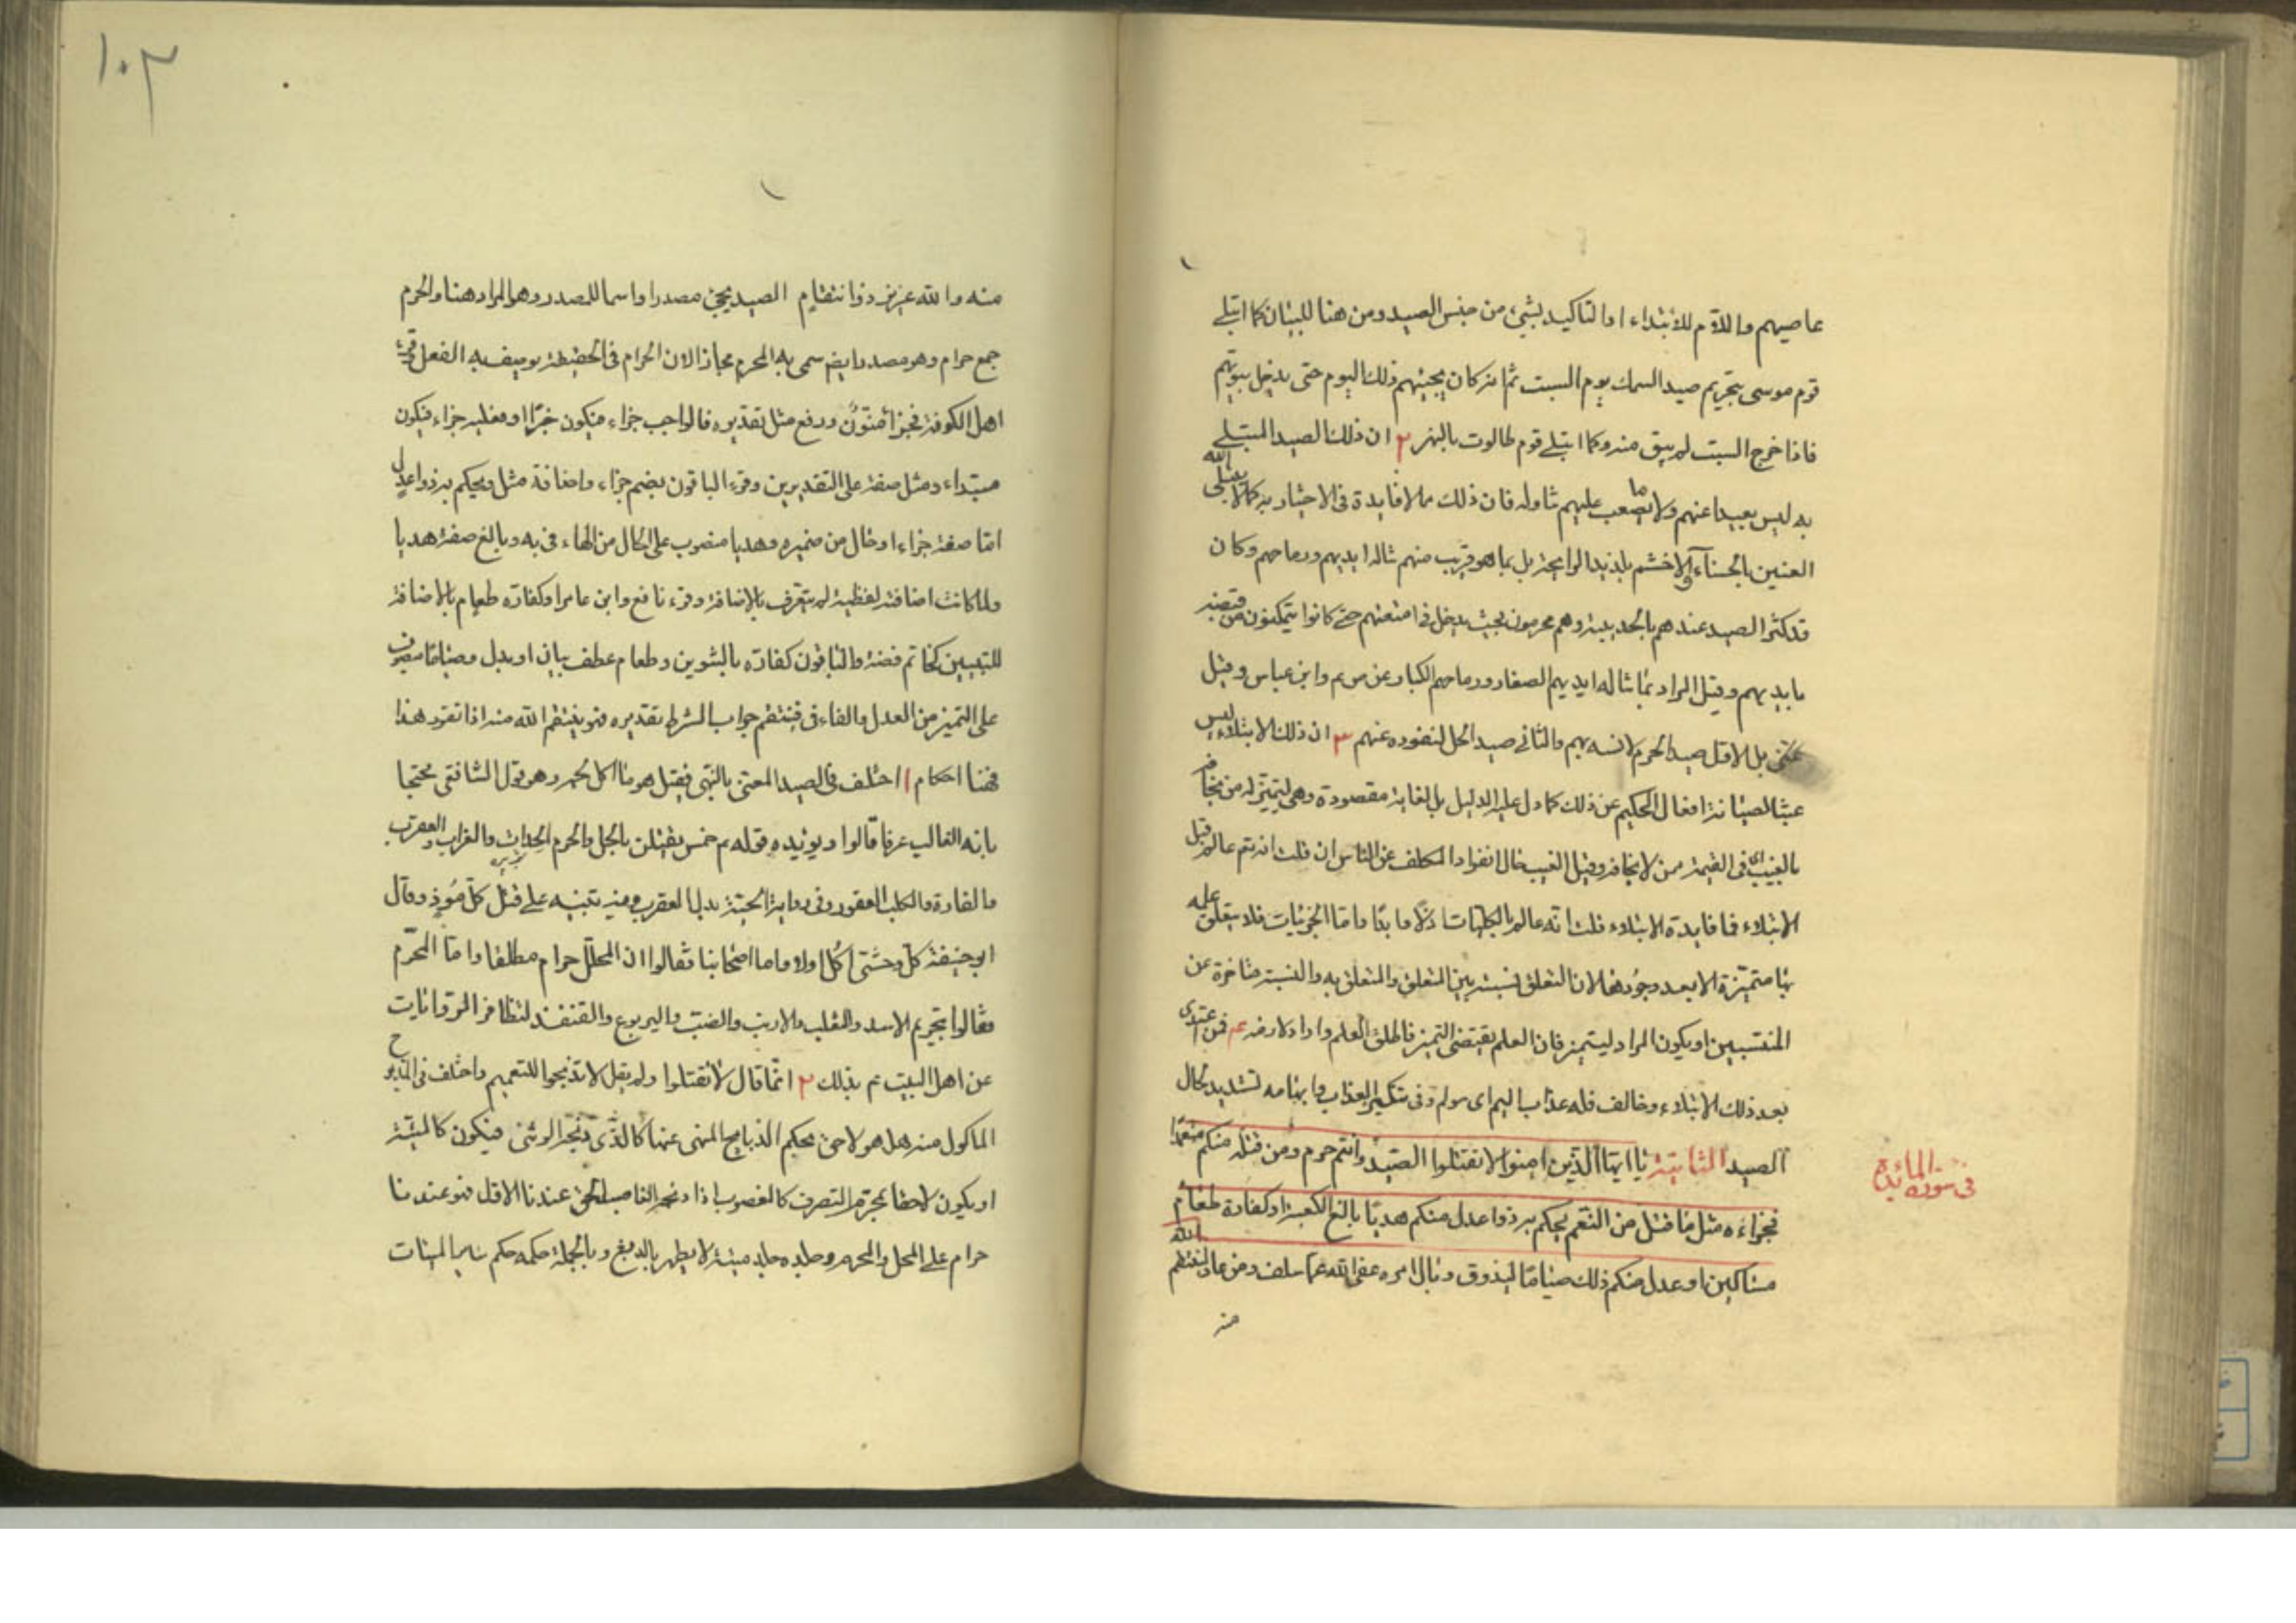 عاصيهم واللام للابتداء او التاكيد بشئ من جنس الصيد ومن هنا للبيان كما ابتلى
قوم موسى بتحريم صيد السمك يوم السبت ثم انه كان يجيئهم ذلك اليوم حتى يدخل بيوتهم
فاذا خرج السبت لم يبق منه وكما ابتلى قوم طالوت بالنهر ٢ ان ذلك الصيد المبتلى
به ليس بعيدا عنهم ولا مما يصعب عليهم تناوله فان ذلك مما لا فايدة فى الاختبار به كما لا يبتلى الله
العنين بالحسناء والاخشم بلذيذ الرايحة بل بما هو قريب منهم تناله ايديهم ورماحهم وكان
قد كثر الصيد عندهم بالحديبية وهم محرمون بحيث يدخل فى امتعتهم حتى كانوا يتمكنون من قبضه
بايديهم وقيل المراد بما تناله ايديهم الصغار ورماحهم الكبار عن ص ع وابن عباس وقيل
عكس بل الاول صيد الحرم لانسه بهم والثانى صيد الحل لنفوره عنهم ٣ ان ذلك الابتلاء ليس
عبثا لصيانة افعال الحكيم عن ذلك كما دل عليه الدليل بل لغاية مقصودة وهى ليتميز له من يخافه
بالغيب اى فى القيمة ممن لا يخافه وقيل الغيب حال انفراد المكلف عن الناس ان قلت انه تع عالم قبل
الابتلاء فما فايدة الابتلاء قلت انه عالم بالكليات ازلا وابدا واما الجزئيات فلا يتعلق علمه
بها متميزة الا بعد وجودها لان التعلق نسبة بين المتعلق والمتعلق به والنسبة متاخرة عن
المنتسبين او يكون المراد ليتميز فان العلم يقتضى التميز فاطلق العلم واراد لازمه ٤ فمن اعتدى
بعد ذلك الابتلاء وخالف فله عذاب اليم اى مولم وفى تنكير العذاب وابهامه تشديد بحال
الصيد الثانية يا ايها الذين امنوا لا تقتلوا الصيد وانتم حرم ومن قتله منكم متعمدا
فجزاءه مثل ما قتل من النعم يحكم به ذوا عدل منكم هديا بالغ الكعبة او كفارة طعام
مساكين او عدل منكم ذلك صياما ليذوق وبال امره عفى الله عما سلف ومن عاد فينتقم الله
منه
فى سورة المائدة
١٠٣
منه والله عزيز ذو انتقام الصيد يجئ مصدرا واسما للمصدر وهو المراد هنا والحرم
جمع حرام وهو مصدر ايضا سمى به المحرم مجازا لان الحرام فى الحقيقة يوصف به الفعل وقرئ
اهل الكوفة فجزاء منون ورفع مثل تقديره فالواجب جزاء فيكون خبرا او فعليه جزاء فيكون
مبتداء ومثل صفة على التقديرين وقرء الباقون بضم جزاء واضافة مثل ويحكم به ذوا عدل
اما صفة جزاء او حال من ضميره وهديا منصوب على الحال من الهاء فى به وبالغ صفة هديا
ولما كانت اضافته لفظية لم يتعرف بالاضافة وقرء نافع وابن عامر او كفارة طعام بالاضافة
للتبيين كخاتم فضة والباقون كفارة بالتنوين وطعام عطف بيان او بدل وصياما منصوب
على التميز من العدل والفاء فى فينتقم جواب الشرط تقديره فهو ينتقم الله منه اذا تقرر هذا
فهنا احكام ١ اختلف فى الصيد المعنى بالنهى فقيل هو ما اكل لحمه وهو قول الشافعى محتجا
بانه الغالب عرفا قالوا ويؤيده قوله ع خمس يقتلن بالحل والحرم الحداة والغراب والعقرب
والفارة والكلب العقور وفى رواية الحية بدل العقرب وفيه تنبيه على قتل كل موذ وقال
ابو حنيفة كل وحشى اكل اولا واما اصحابنا فقالوا ان المحلل حرام مطلقا واما المحرم
فقالوا بتحريم الاسد والثعلب والارنب والضب واليربوع والقنفذ لتظافر الروايات
عن اهل البيت ع بذلك ٢ انما قال لا تقتلوا ولم يقل لا تذبحوا للتعميم واختلف فى المذبوح
الماكول منه هل هو لاحق بحكم الذبايح المنهى عنها كالذى ذبحه الوثنى فيكون كالميتة
او يكون لاحقا بمحرم التصرف كالمغصوب اذا ذبحه الغاصب الحق عندنا الاول فهو عندنا
حرام على المحل والمحرم وجلده جلد ميتة لا يطهر بالدبغ وبالجملة حكمه حكم ساير الميتات